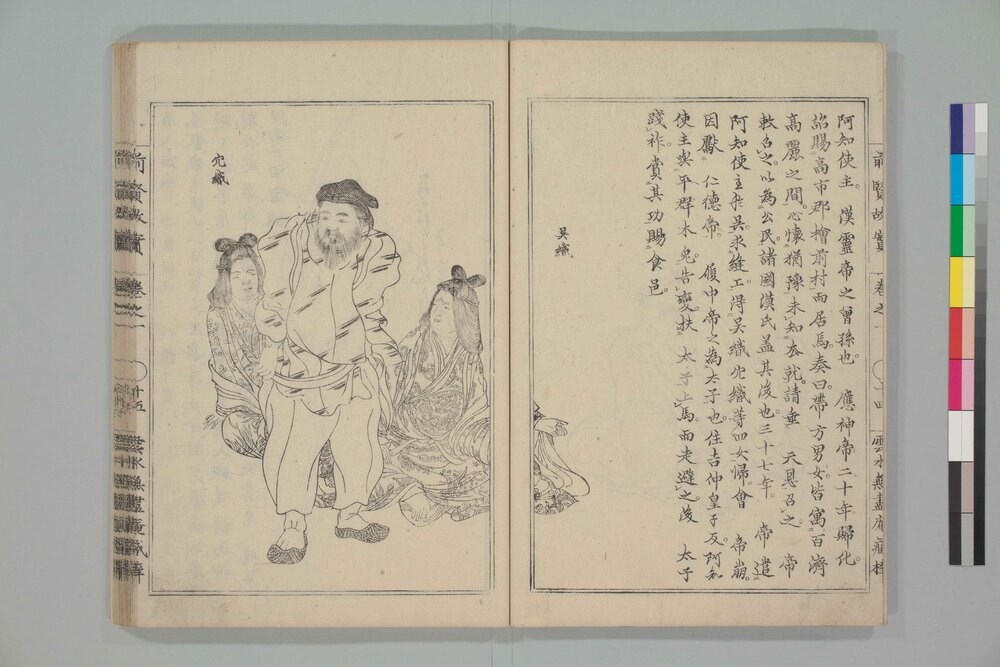 阿知使主。漢靈帝之曾孫也。 應神帝二十年歸化。
詔賜高市郡檜前村而居焉。奏曰。帶方男女。皆寓百濟
高麗之間。心懷猶豫未知去就。請垂 天恩召之。 帝
敕召之。以為公民。諸國漢氏蓋其後也。三十七年。 帝遣
阿知使主於吳求縫工。得吳織穴織等四女歸。會 帝崩。
因獻 仁德帝。 履中帝之為太子也。住吉仲皇子反。阿知
使主與平群木兔告變。扶 太子上馬而走避之。後 太子
踐祚。賞其功賜食邑。
吳織
穴織
前賢故實 卷之一
雲水無盡庵藏梓
前賢故實 卷之一
廿五